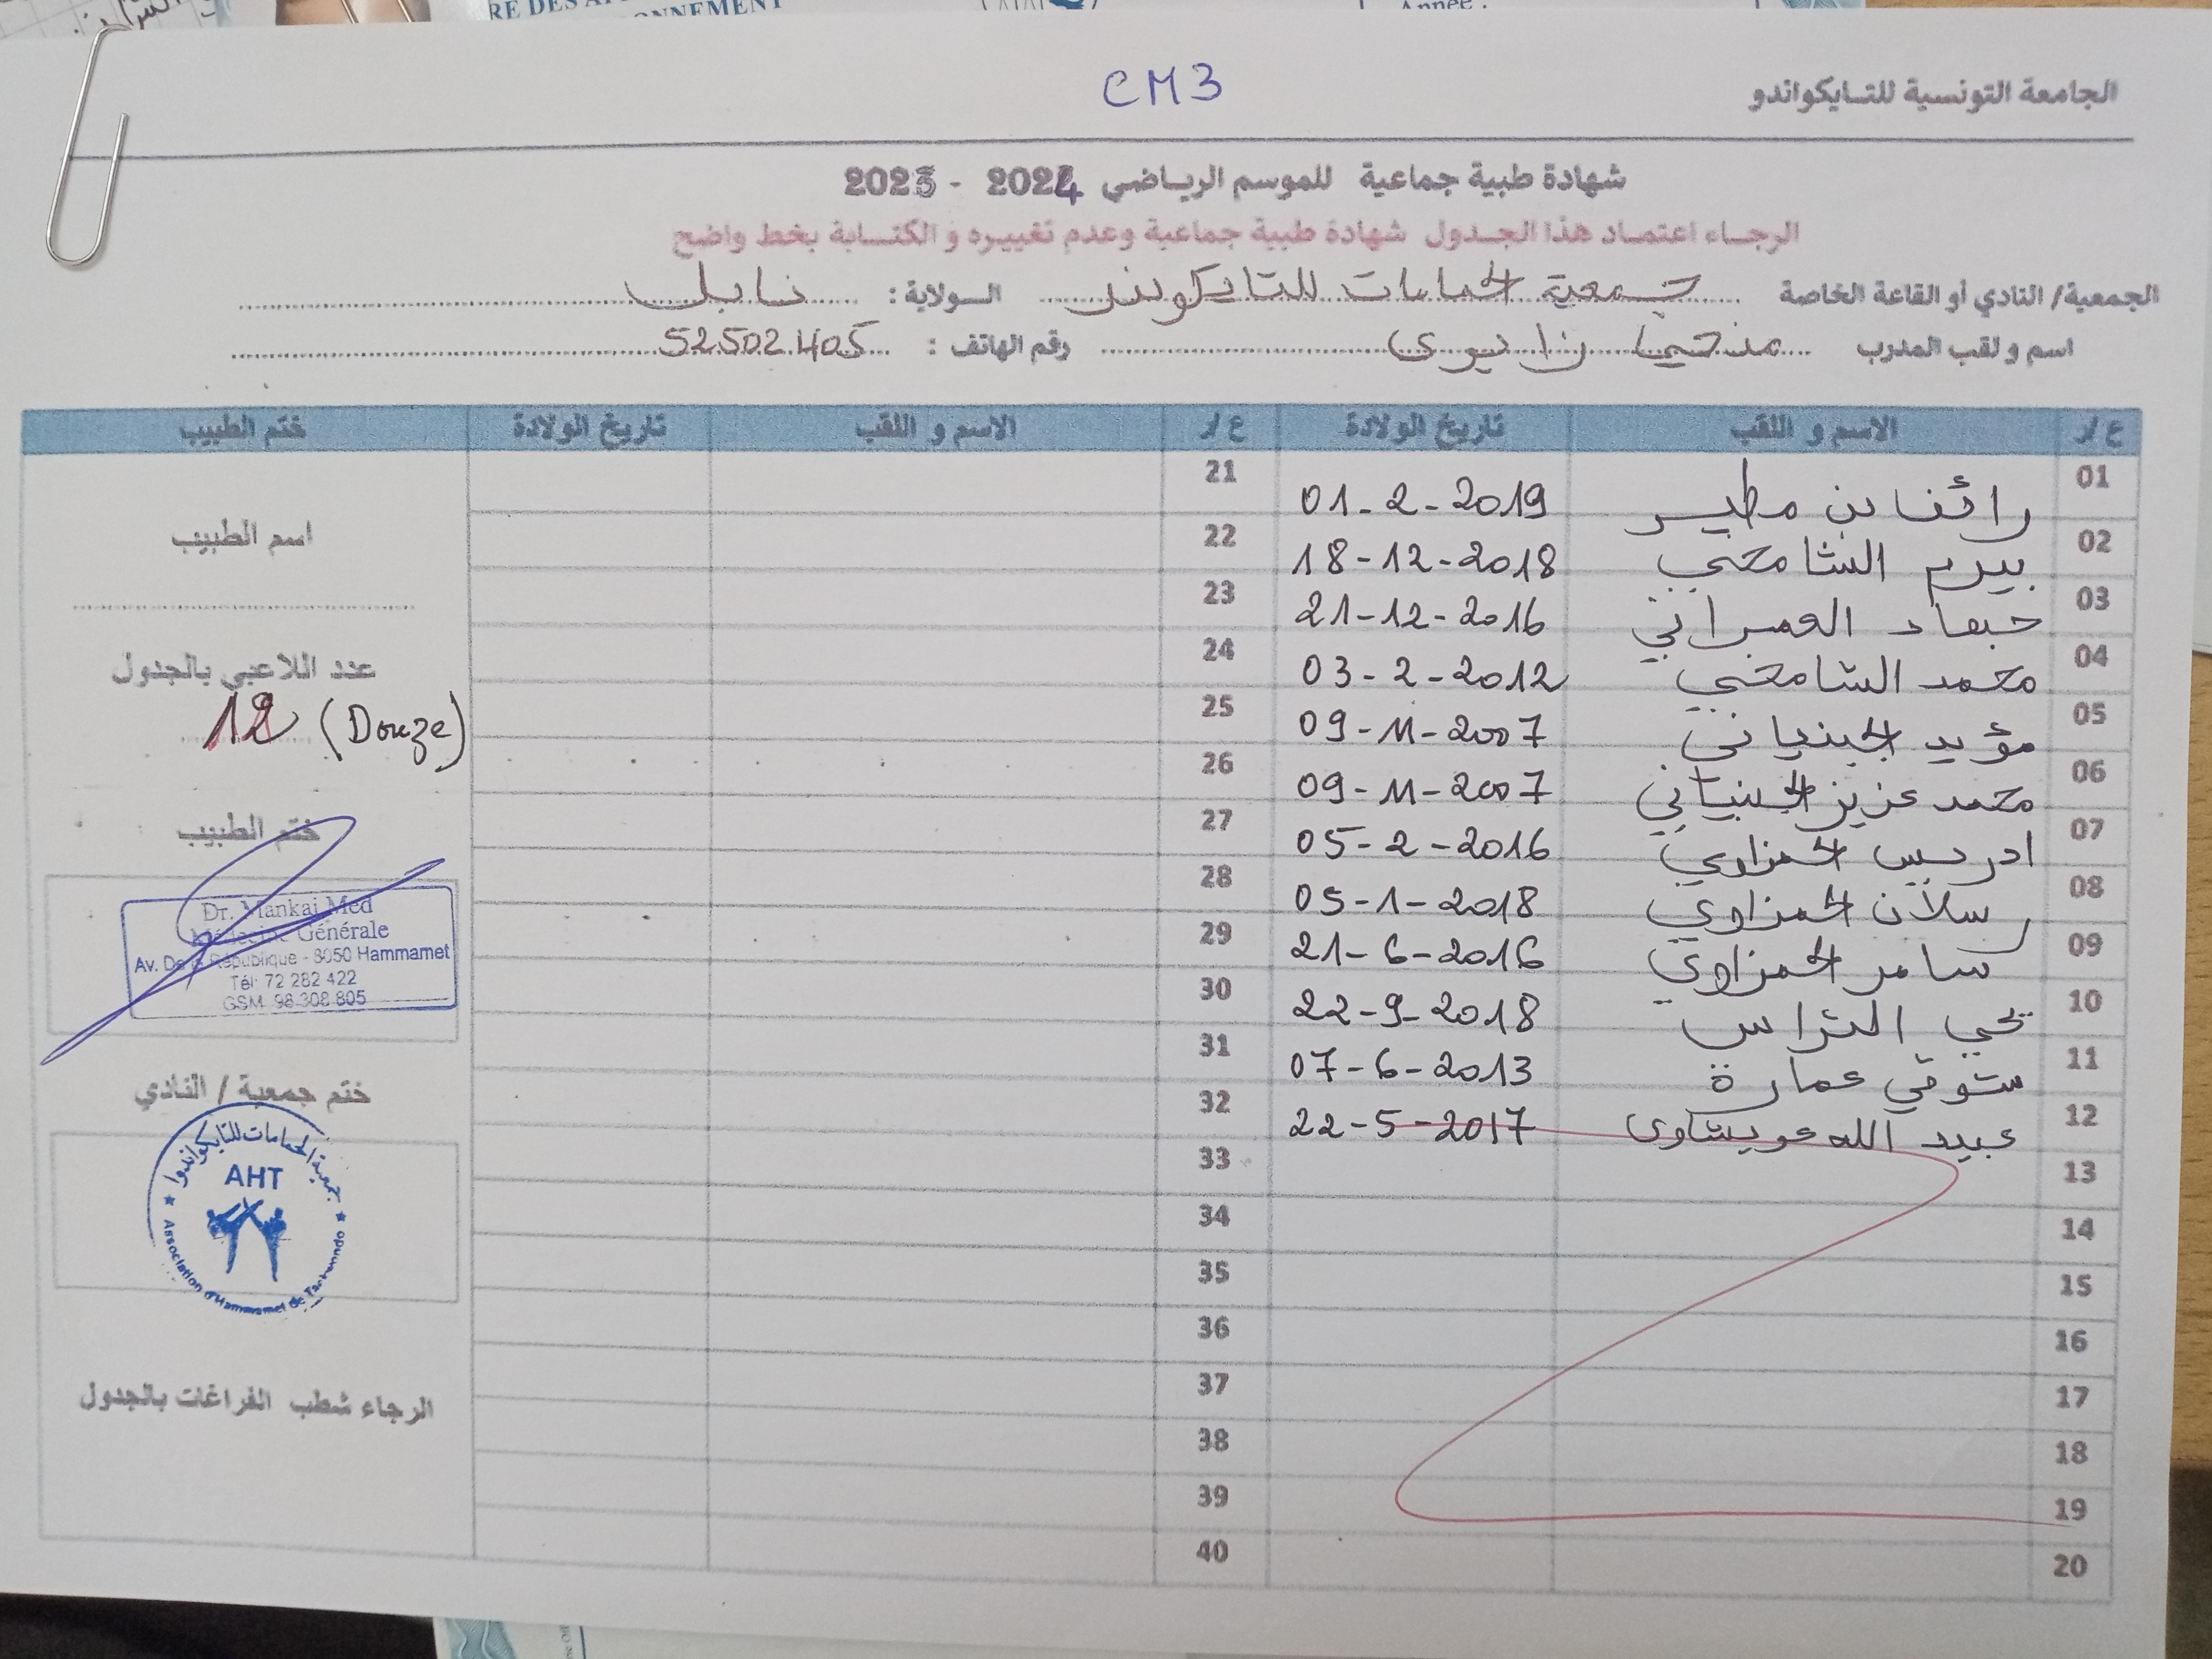 RE DES
ONNEMENT
Année :
CM3
الجامعة التونسية للتايكواندو
شهادة طبية جماعية للموسم الرياضي 2024 - 2023
الرجاء اعتماد هذا الجدول شهادة طبية جماعية وعدم تغييره و الكتابة بخط واضح
الجمعية/ النادي أو القاعة الخاصة جمعية الحمامات للتايكوندو الولاية : نابل
اسم و لقب المدرب زانيوي رقم الهاتف : 52502405
ع/ر الاسم و اللقب تاريخ الولادة ع/ر الاسم و اللقب تاريخ الولادة ختم الطبيب
01 رائف بن مطير 01-2-2019 21
02 بيرم الشامخي 18-12-2018 22
03 العمراني 21-12-2016 23
04 محمد الشامخي 03-2-2012 24
05 مؤيد الجبنياني 09-11-2007 25
06 محمد عزيز الجبنياني 09-11-2007 26
07 ادريس الحمزاوي 05-2-2016 27
08 رسلان الحمزاوي 05-1-2018 28
09 سامر الحمزاوي 21-6-2016 29
10 يحي التراس 22-9-2018 30
11 شوقي عمارة 07-6-2013 31
12 عبيد الله عويشاوي 22-5-2017 32
13 33
14 34
15 35
16 36
17 37
18 38
19 39
20 40
اسم الطبيب
عدد اللاعبي بالجدول
12 (Douze)
ختم الطبيب
Dr. Mankai Med
Médecine Générale
Av. De la République - 8050 Hammamet
Tél: 72 282 422
GSM. 98 308 805
ختم جمعية / النادي
جمعية الحمامات للتايكواندوا
AHT
Association d'Hammamet de Taekwondo
الرجاء شطب الفراغات بالجدول